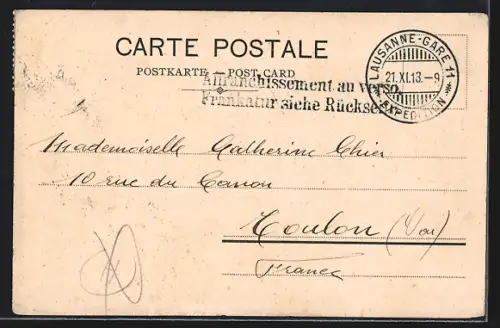 CARTE POSTALE
POSTKARTE - POST CARD
Affranchissement au verso.
Frankatur siehe Rückseite
LAUSANNE-GARE 11
21.XI.13.-9
EXPEDITION
Mademoiselle Catherine Chier
10 rue du Canon
Toulon (Var)
France